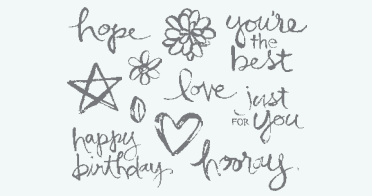 hope
you're
the
best
love
just
FOR
you
happy
birthday
hooray.